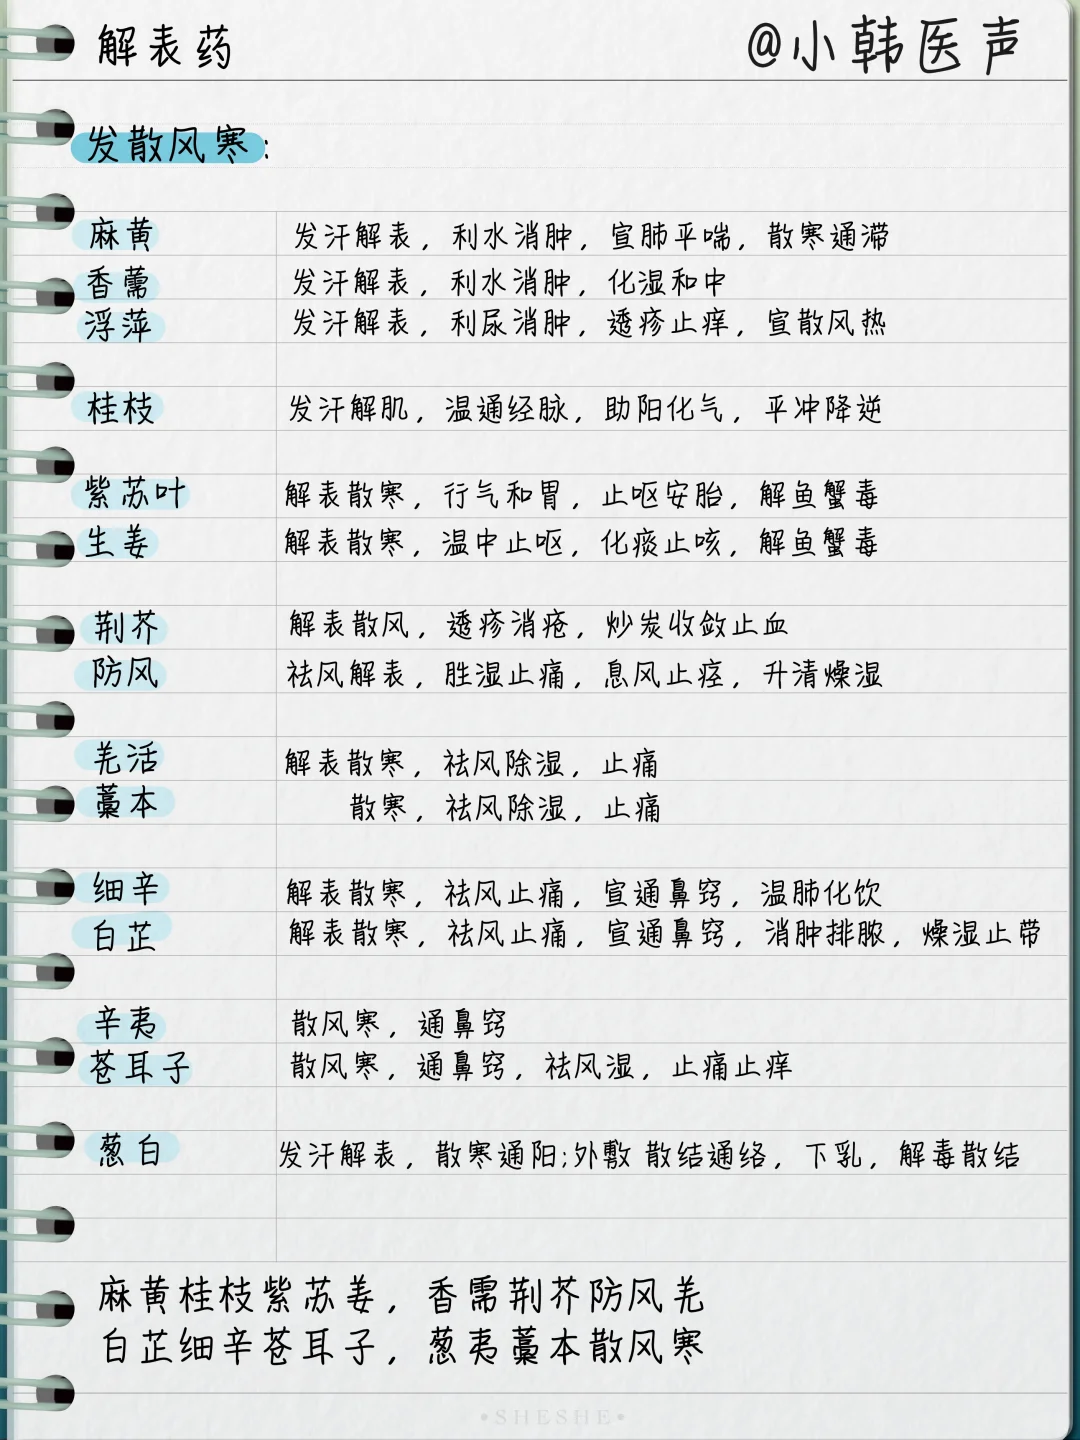 解表药
@小韩医声
发散风寒:
麻黄 发汗解表，利水消肿，宣肺平喘，散寒通滞
香薷 发汗解表，利水消肿，化湿和中
浮萍 发汗解表，利尿消肿，透疹止痒，宣散风热
桂枝 发汗解肌，温通经脉，助阳化气，平冲降逆
紫苏叶 解表散寒，行气和胃，止呕安胎，解鱼蟹毒
生姜 解表散寒，温中止呕，化痰止咳，解鱼蟹毒
荆芥 解表散风，透疹消疮，炒炭收敛止血
防风 祛风解表，胜湿止痛，息风止痉，升清燥湿
羌活 解表散寒，祛风除湿，止痛
藁本 散寒，祛风除湿，止痛
细辛 解表散寒，祛风止痛，宣通鼻窍，温肺化饮
白芷 解表散寒，祛风止痛，宣通鼻窍，消肿排脓，燥湿止带
辛夷 散风寒，通鼻窍
苍耳子 散风寒，通鼻窍，祛风湿，止痛止痒
葱白 发汗解表，散寒通阳;外敷 散结通络，下乳，解毒散结
麻黄桂枝紫苏姜，香需荆芥防风羌
白芷细辛苍耳子，葱夷藁本散风寒
•SHESHE•